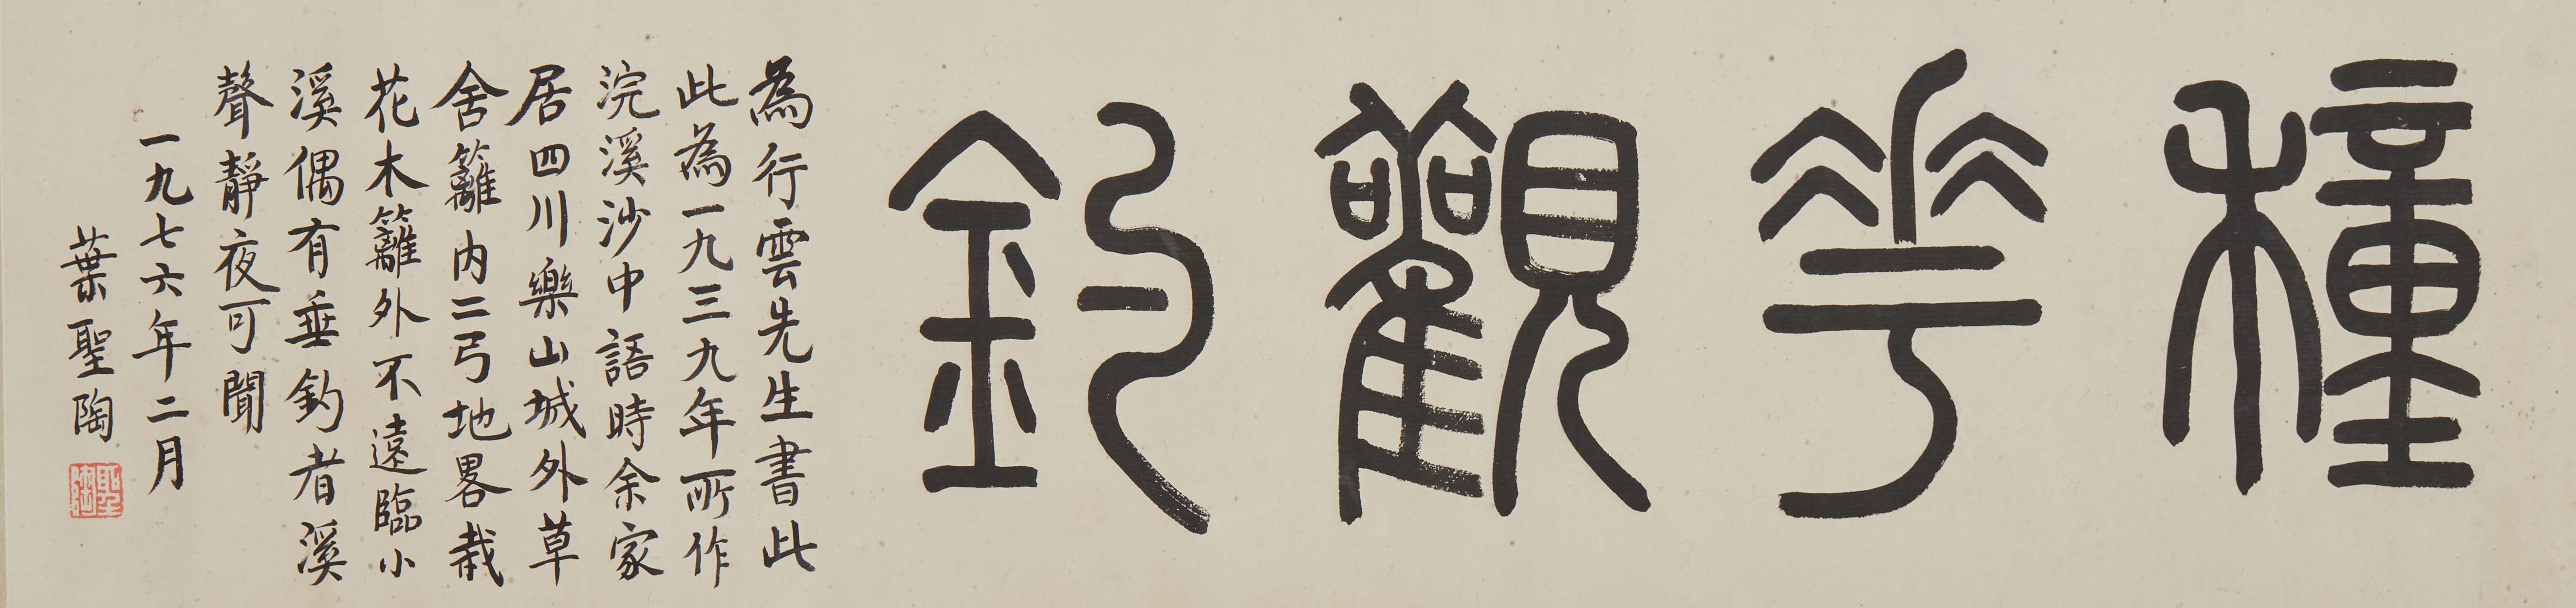 種華觀釣
為行雲先生書此
此為一九三九年所作
浣溪沙中語時余家
居四川樂山城外草
舍籬內二弓地畧栽
花木籬外不遠臨小
溪偶有垂釣者溪
聲靜夜可聞
一九七六年二月
葉聖陶
聖陶